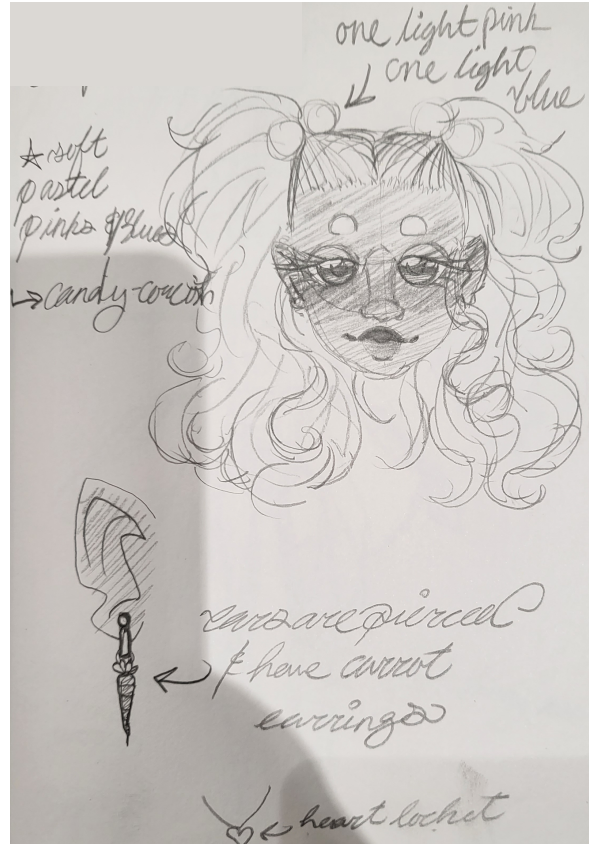 one light pink
one light
blue
☆ soft
pastel
pinks & Blues
→ candy-
ears are pierced
& have carrot
earrings
heart locket